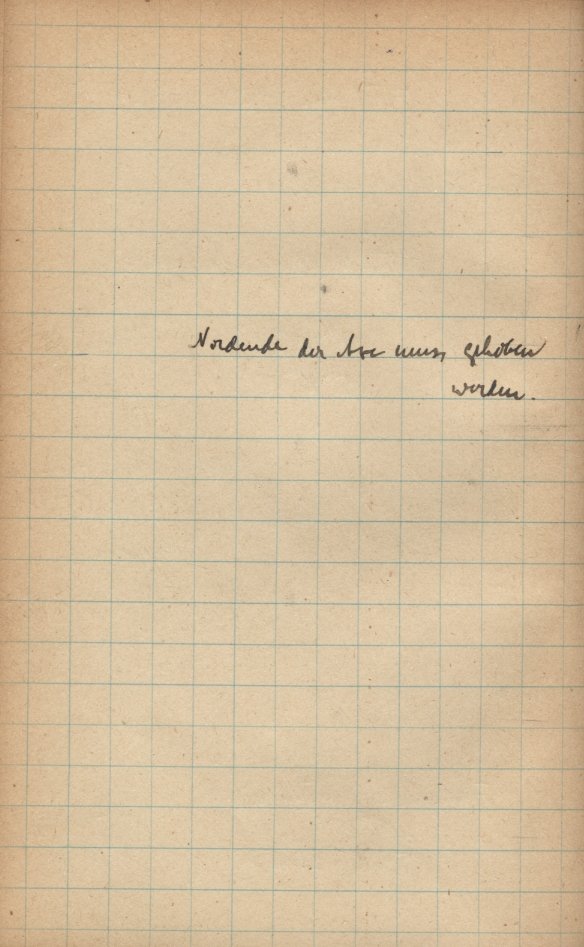 Nordende der Axe muss gehoben
werden.